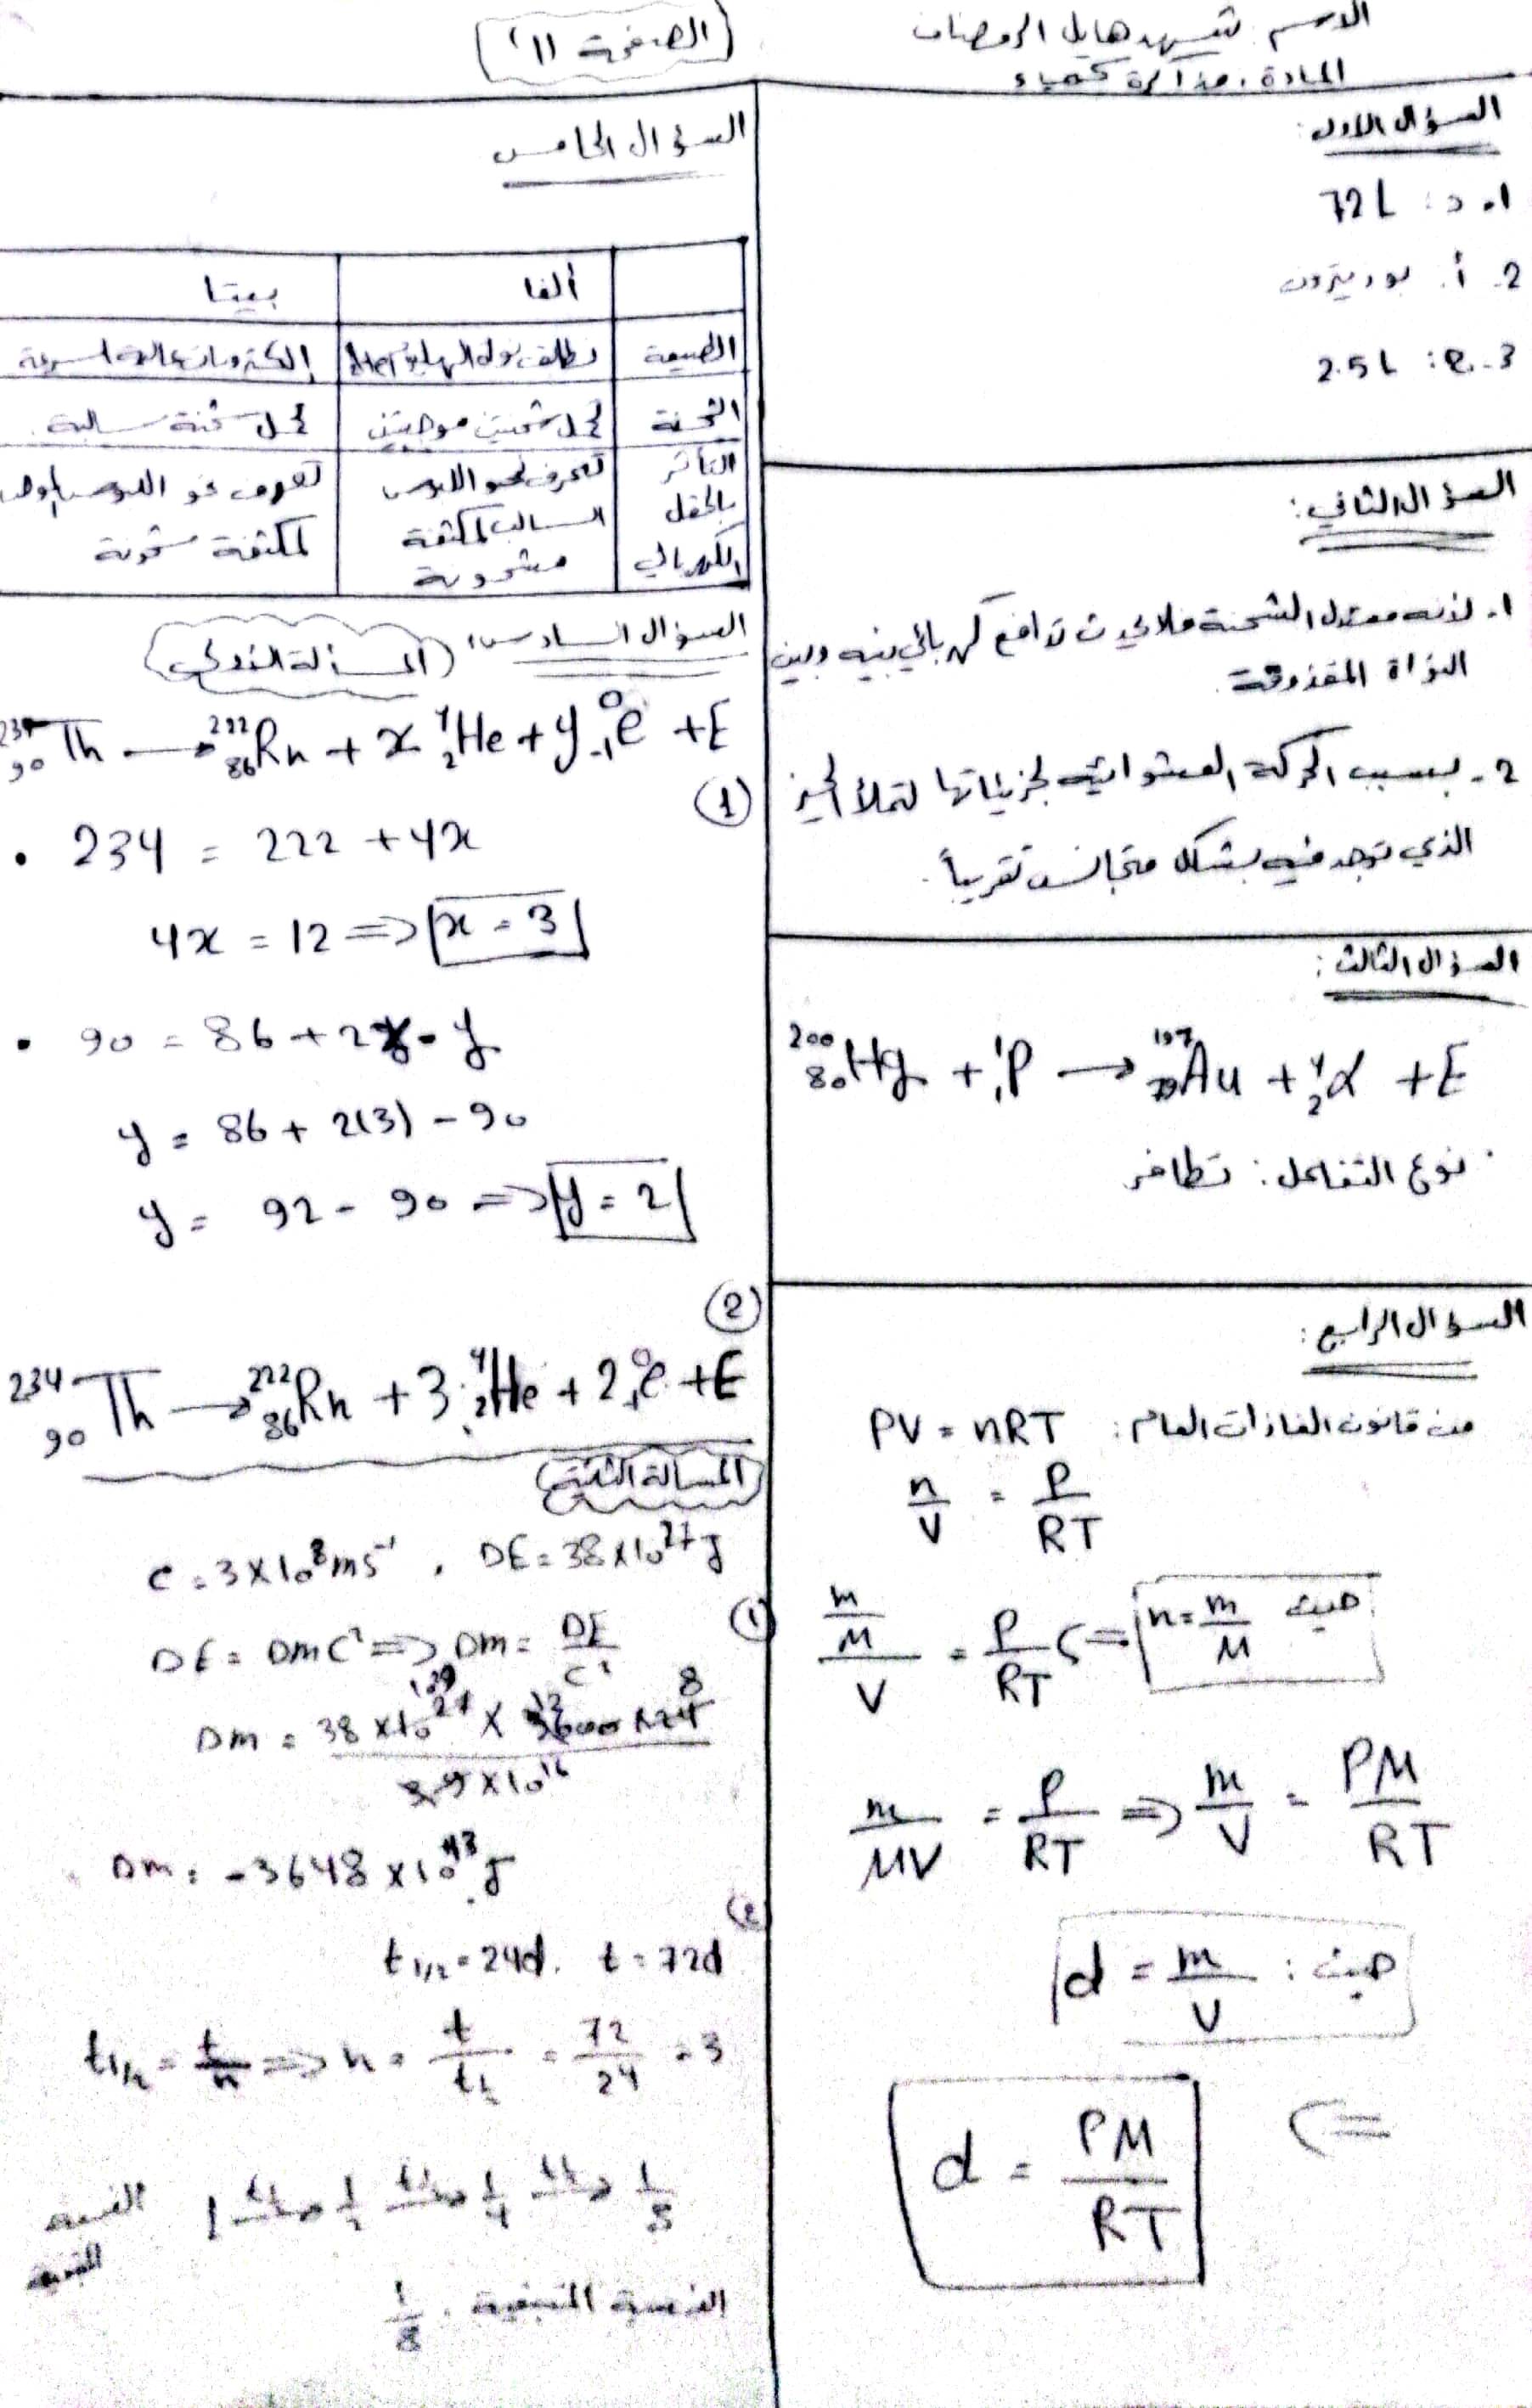 الاسم: شهد هايل الرمضان
المادة: مذاكرة كيمياء
(الصفحة 11)
السؤال الأول:
1. د: 72 L
2. أ. بوزيترون
3. ج: 2.5 L
السؤال الثاني:
1. لأنه معتدل الشحنة فلا يحدث تدافع كهربائي بينه وبين
النواة المقذوفة.
2. بسبب الحركة العشوائية لجزيئاتها لتملأ الحيز
الذي توجد فيه بشكل متجانس تقريباً.
السؤال الثالث:
²⁰⁰₈₀Hg + ¹₁P → ¹⁹⁷₇₉Au + ⁴₂α + E
نوع التفاعل: تطافر
السؤال الرابع:
من قانون الغازات العام: PV = nRT
n/V = P/RT
حيث n = m/M ⇒ (m/M)/V = P/RT
m/MV = P/RT ⇒ m/V = PM/RT
حيث: d = m/V
⇒ d = PM/RT
السؤال الخامس
ألفا بيتا
الطبيعة تطابق نوى الهيليوم إلكترونات عالية السرعة
الشحنة تحمل شحنتين موجبتين تحمل شحنة سالبة
التأثر بالحقل الكهربائي تنحرف نحو اللبوس السالب لمكثفة مشحونة تنحرف نحو اللبوس الموجب لمكثفة مشحونة
السؤال السادس: (المسألة الأولى)
²³⁴₉₀Th → ²²²₈₆Rn + x ⁴₂He + y ⁰₋₁e + E
(1)
• 234 = 222 + 4x
4x = 12 ⇒ x = 3
• 90 = 86 + 2x - y
y = 86 + 2(3) - 90
y = 92 - 90 ⇒ y = 2
(2)
²³⁴₉₀Th → ²²²₈₆Rn + 3 ⁴₂He + 2 ⁰₋₁e + E
المسألة الثانية
C = 3×10⁸ ms⁻¹ , DE = 38×10²⁷ J
(1) DE = DmC² ⇒ Dm = DE/C²
Dm = 38×10²⁷ × 3600 × 24 / 9×10¹⁶
Dm = -3648×10¹³ J
(2)
t1/2 = 24d. t = 72d
t1/2 = t/n ⇒ n = t/t½ = 72/24 = 3
1 → 1/2 → 1/4 → 1/8
النسبة المتبقية. 1/8